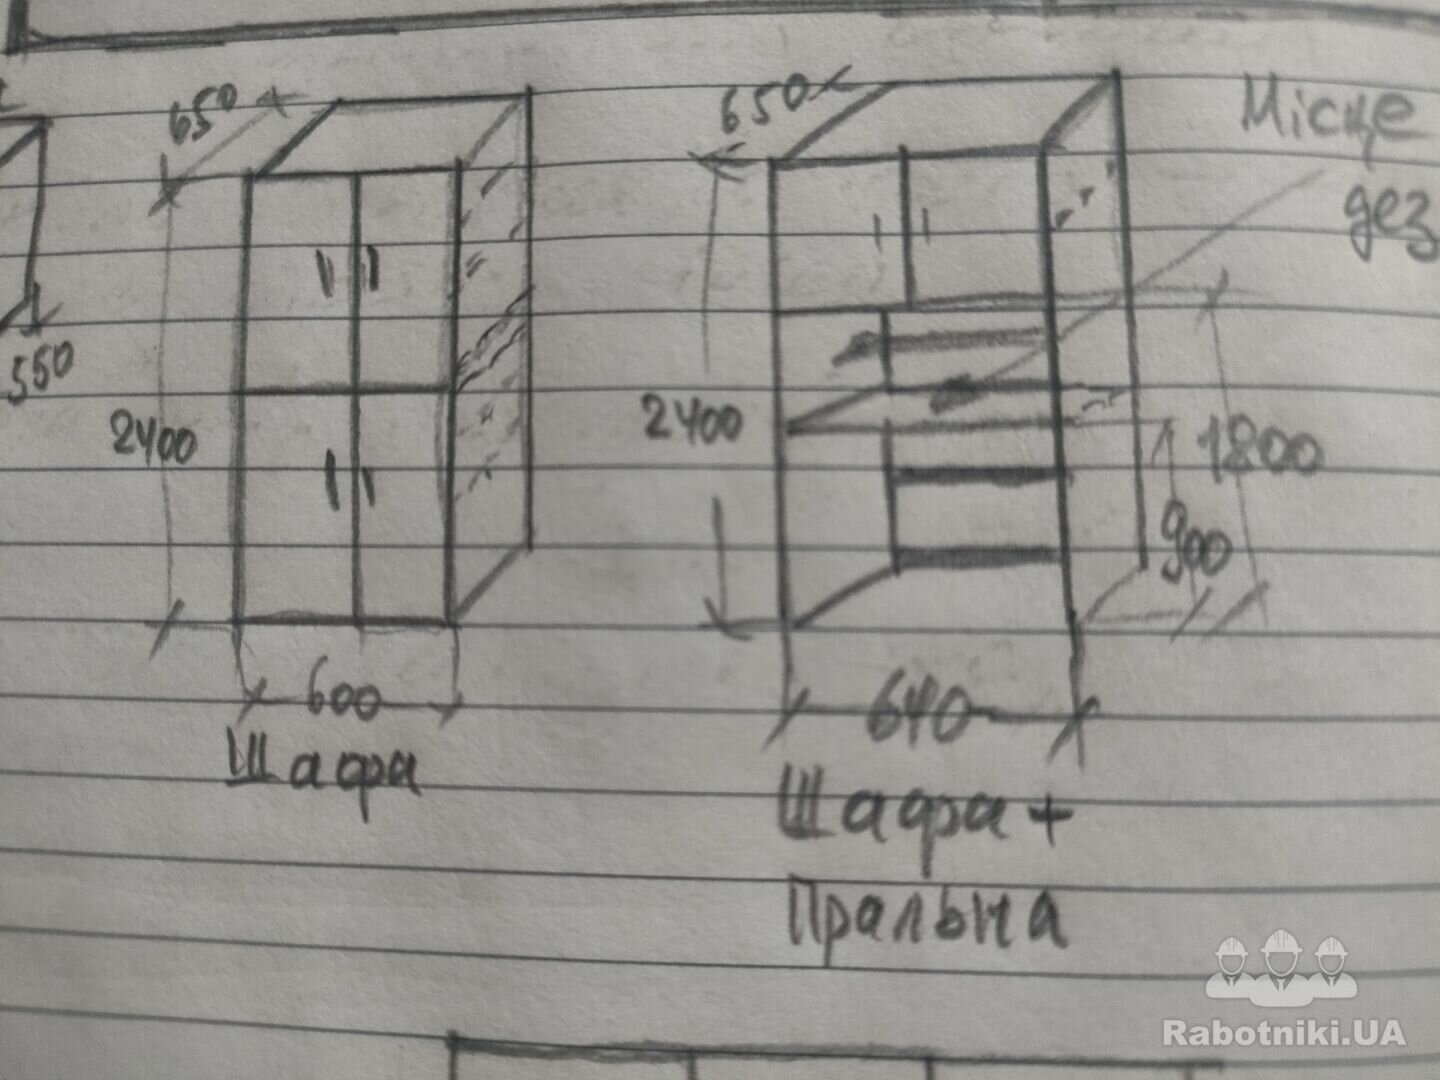 650
650
Місце
дез
550
2400
2400
1800
900
600
640
Шафа
Шафа +
Пральна
Rabotniki.UA